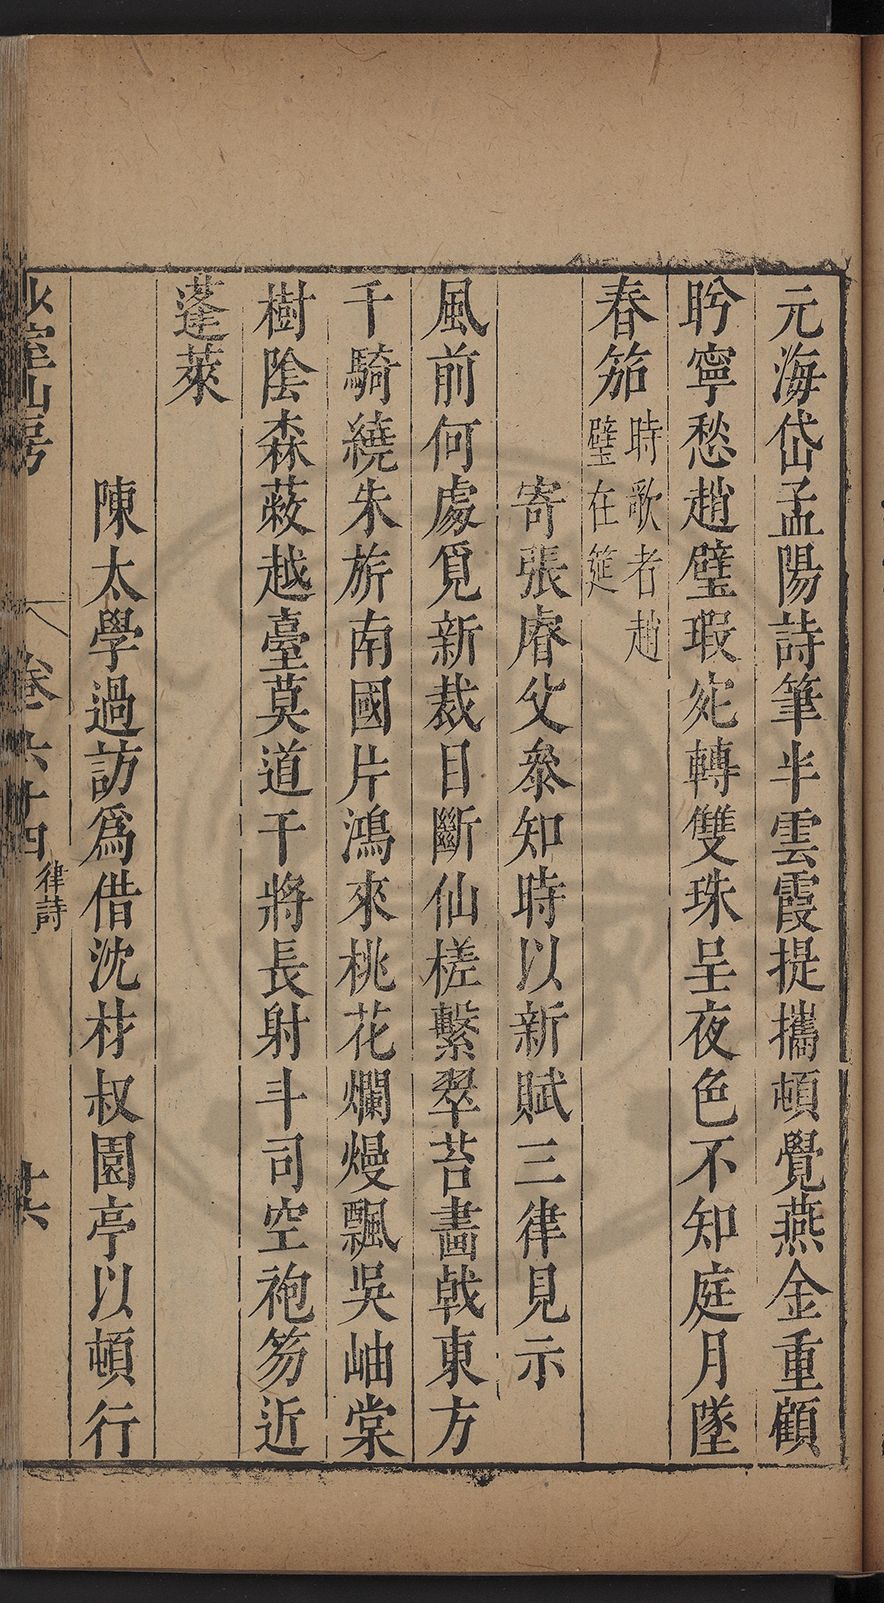 元海岱孟陽詩筆半雲霞提攜頓覺燕金重顧
盻寧愁趙璧瑕宛轉雙珠呈夜色不知庭月墜
春笳時歌者趙璧在筵
寄張睿父叅知時以新賦三律見示
風前何處覓新裁目斷仙槎繫翠苔畫戟東方
千騎繞朱旂南國片鴻來桃花爛熳飄吳岫棠
樹陰森蔽越臺莫道干將長射斗司空袍笏近
蓬萊
陳太學過訪爲借沈材叔園亭以頓行
少室山房 卷六十四 律詩 十六